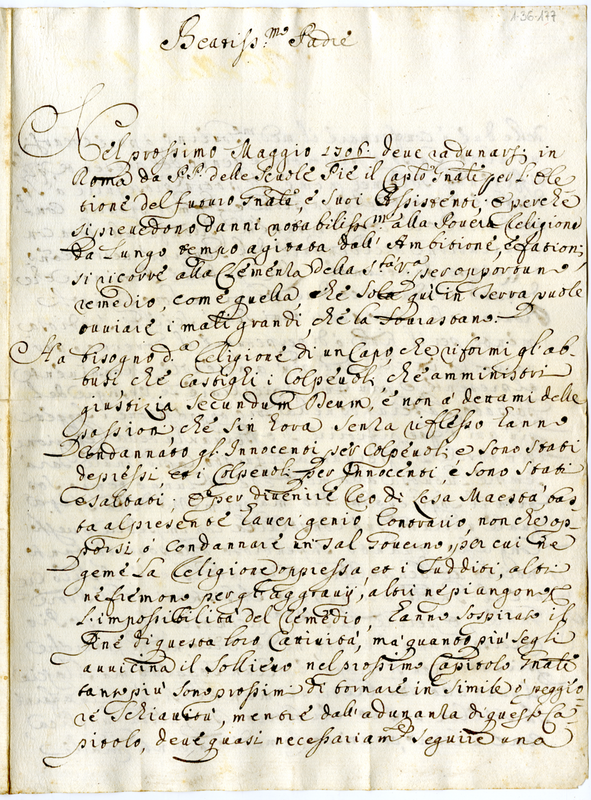 1-36-177
Beatiss.mo Padre
Nel prossimo Maggio 1706 deve radunarsi in
Roma da PP. delle Scuole Pie il Captlo Gnale per l'Ele
tione del futuro Gnale, e suoi Assistenti; e perche
si prevedono danni notabiliss.mi alla Povera Religione
da lungo tempo agitata dall'Ambitione, e fationi,
si ricorre alla Clemenza della Stà V.a per opportuno
remedio, come quella, che sola qui in Terra puole
ovviare i mali grandi, che la sourastano.
Ha bisogno d.a Religione di un Capo, che riformi gl'ab-
busi che castighi i Colpevoli, che amministri
giustizia secundum Deum, e non a' dettami delle
passioni che sin hora senza riflesso hanno
condannato gl'Innocenti per Colpevoli, e sono stati
depressi, et i Colpevoli per Innocenti, e sono stati
esaltati; e per divenire Reo di Lesa Maestà, bas-
ta al presente haver genio Contrario, non che op-
porsi ò condannare un tal Governo, per cui ne
geme la Religione oppressa et i Sudditi, altri
ne fremono per gl'aggravij, altri ne piangono
l'impossibilità del Remedio, hanno sospirato il
fine di questa loro Cattività, ma quanto più se gli
avvicina il sollievo nel prossimo Capitolo Gnale
tanto più sono prossimi di tornare in simile ò peggio-
re schiavitù, mentre dall'adunanza di questo Ca-
pitolo, deve quasi necessariam.te seguire una